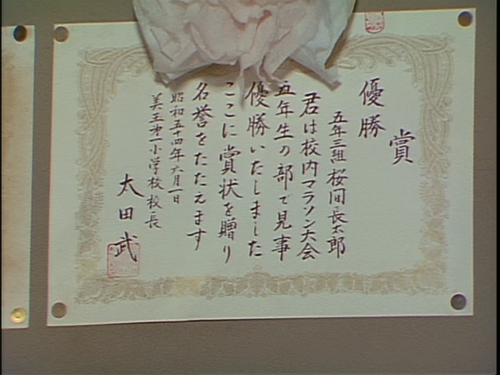 賞
優勝
五年三組 桜間長太郎
君は校内マラソン大会
五年生の部で見事
優勝いたしました
ここに賞状を贈り
名誉をたたえます
昭和五十四年六月一日
美王第一小学校校長
太田武